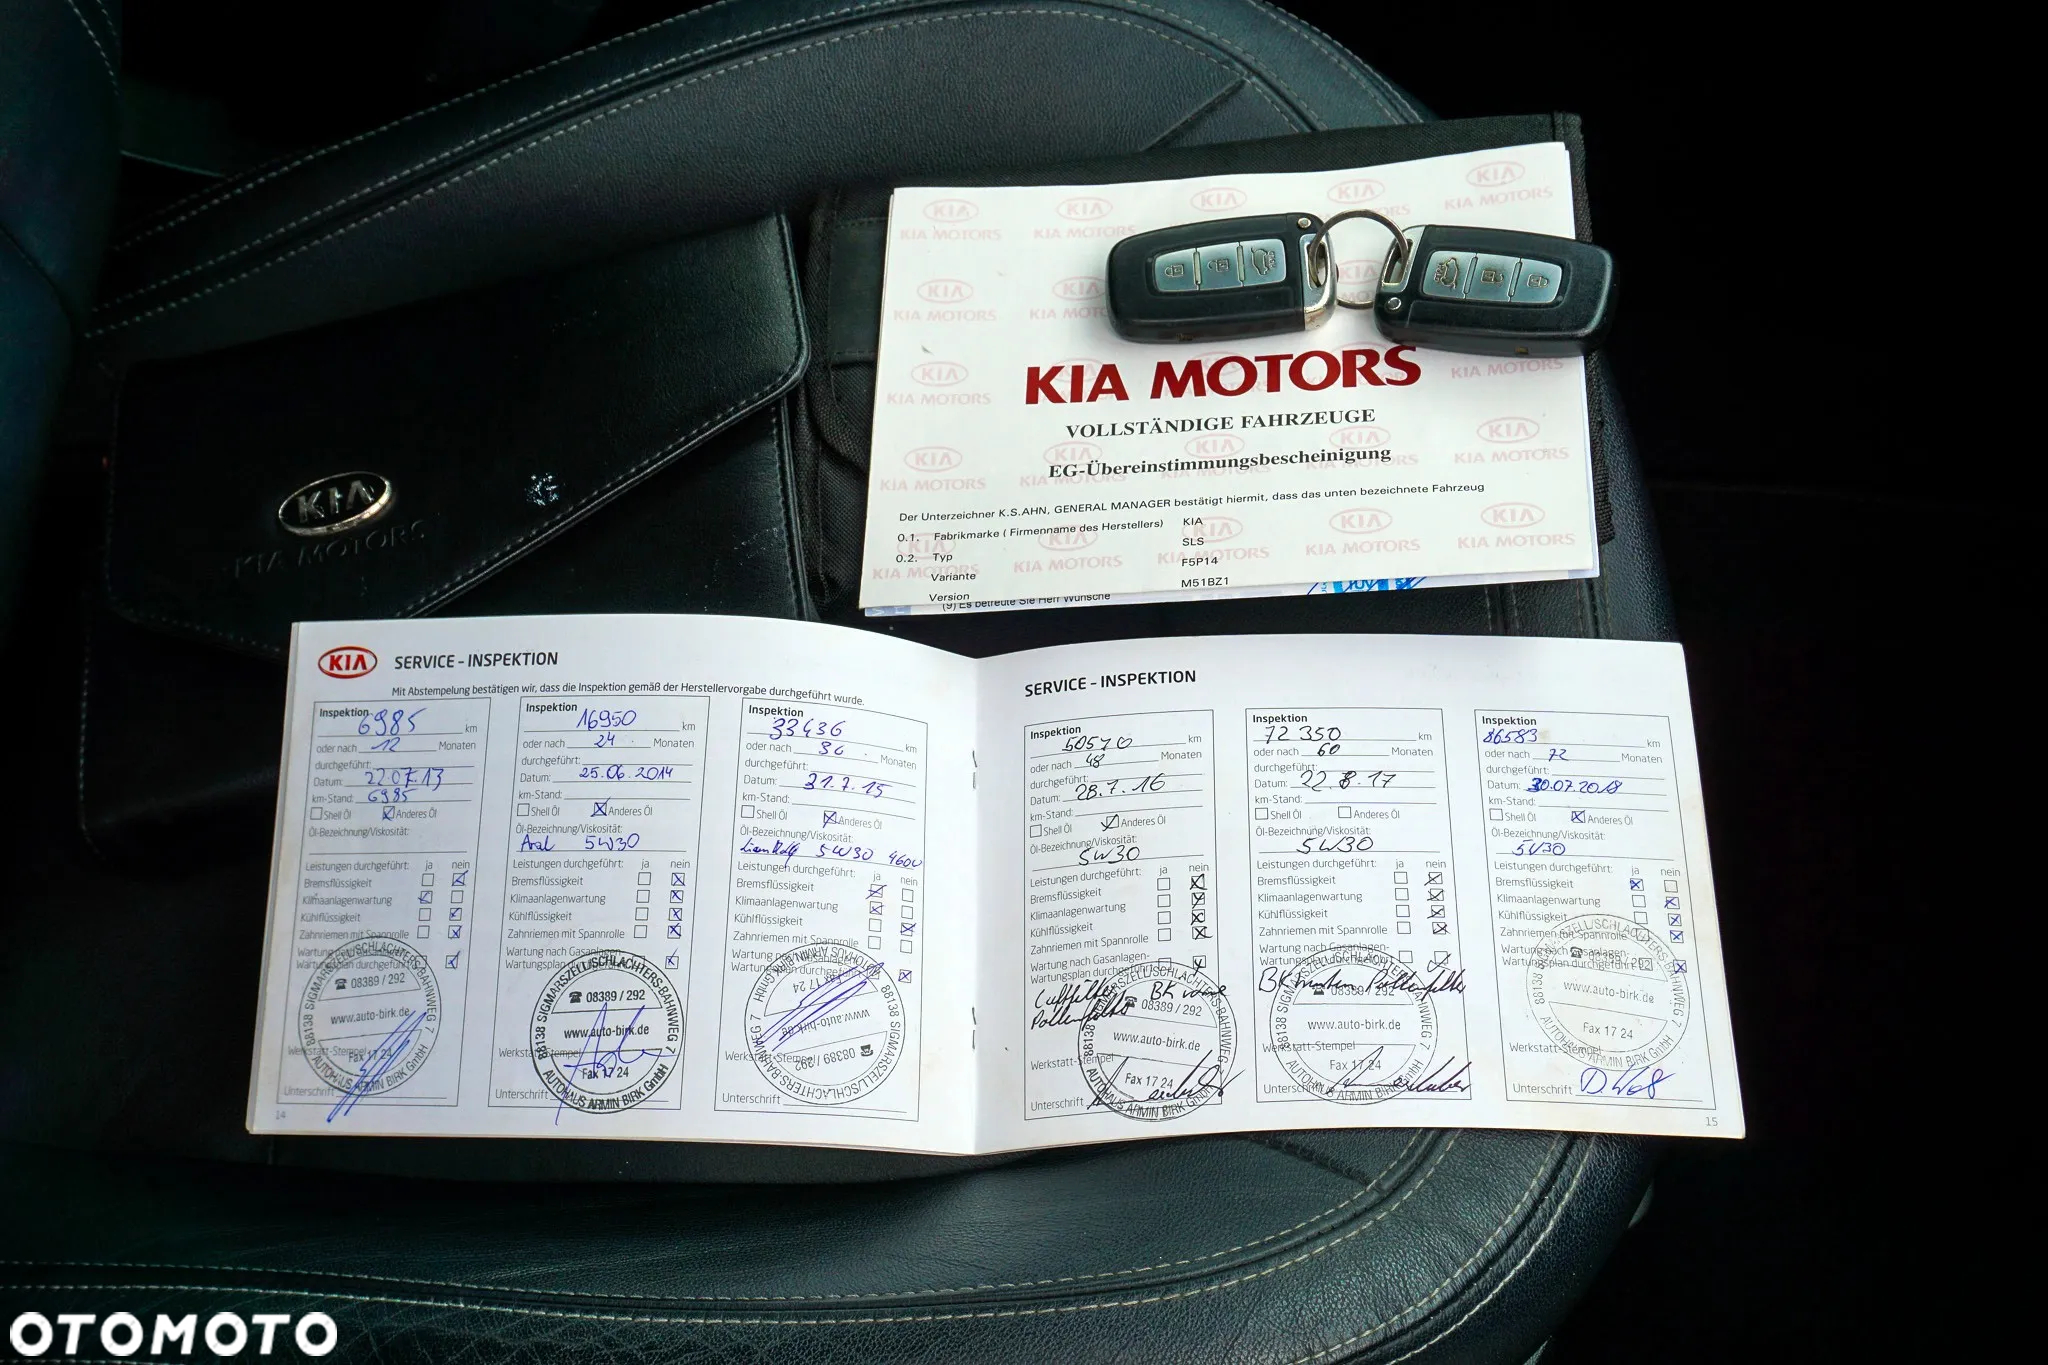 KIA MOTORS
VOLLSTÄNDIGE FAHRZEUGE
EG-Übereinstimmungsbescheinigung
Der Unterzeichner K.S.AHN, GENERAL MANAGER bestätigt hiermit, dass das unten bezeichnete Fahrzeug
0.1. Fabrikmarke ( Firmenname des Herstellers) KIA
0.2. Typ SLS
Variante F5P14
Version M51BZ1
(9) Es betreute Sie Herr Wünsche
KIA
KIA MOTORS
KIA SERVICE - INSPEKTION
Mit Abstempelung bestätigen wir, dass die Inspektion gemäß der Herstellervorgabe durchgeführt wurde.
Inspektion
6985 km
oder nach 12 Monaten
durchgeführt:
Datum: 22.07.13
km-Stand: 6985
Shell Öl Anderes Öl
Öl-Bezeichnung/Viskosität:
Leistungen durchgeführt: ja nein
Bremsflüssigkeit
Klimaanlagenwartung
Kühlflüssigkeit
Zahnriemen mit Spannrolle
Wartung nach Gasanlagen-
Wartungsplan durchgeführt
88138 SIGMARSZELL/SCHLACHTERS-BAHNWEG 7
08389 / 292
www.auto-birk.de
Fax 17 24
AUTOHAUS ARMIN BIRK GmbH
Werkstatt-Stempel
Unterschrift
14
Inspektion
16950 km
oder nach 24 Monaten
durchgeführt:
Datum: 25.06.2014
km-Stand:
Shell Öl Anderes Öl
Öl-Bezeichnung/Viskosität:
Aral 5W30
Leistungen durchgeführt: ja nein
Bremsflüssigkeit
Klimaanlagenwartung
Kühlflüssigkeit
Zahnriemen mit Spannrolle
Wartung nach Gasanlagen-
Wartungsplan durchgeführt
88138 SIGMARSZELL/SCHLACHTERS-BAHNWEG 7
08389 / 292
www.auto-birk.de
Fax 17 24
AUTOHAUS ARMIN BIRK GmbH
Werkstatt-Stempel
Unterschrift
Inspektion
33436 km
oder nach 36 Monaten
durchgeführt:
Datum: 31.7.15
km-Stand:
Shell Öl Anderes Öl
Öl-Bezeichnung/Viskosität:
5W30 4600
Leistungen durchgeführt: ja nein
Bremsflüssigkeit
Klimaanlagenwartung
Kühlflüssigkeit
Zahnriemen mit Spannrolle
Wartung nach Gasanlagen-
Wartungsplan durchgeführt
88138 SIGMARSZELL/SCHLACHTERS-BAHNWEG 7
08389 / 292
www.auto-birk.de
Fax 17 24
AUTOHAUS ARMIN BIRK GmbH
Werkstatt-Stempel
Unterschrift
SERVICE - INSPEKTION
Inspektion
50570 km
oder nach 48 Monaten
durchgeführt:
Datum: 28.7.16
km-Stand:
Shell Öl Anderes Öl
Öl-Bezeichnung/Viskosität:
5W30
Leistungen durchgeführt: ja nein
Bremsflüssigkeit
Klimaanlagenwartung
Kühlflüssigkeit
Zahnriemen mit Spannrolle
Wartung nach Gasanlagen-
Wartungsplan durchgeführt
Luftfilter BK
Pollenfilter
88138 SIGMARSZELL/SCHLACHTERS-BAHNWEG 7
08389 / 292
www.auto-birk.de
Fax 17 24
AUTOHAUS ARMIN BIRK GmbH
Werkstatt-Stempel
Unterschrift
Inspektion
72350 km
oder nach 60 Monaten
durchgeführt:
Datum: 22.8.17
km-Stand:
Shell Öl Anderes Öl
Öl-Bezeichnung/Viskosität:
5W30
Leistungen durchgeführt: ja nein
Bremsflüssigkeit
Klimaanlagenwartung
Kühlflüssigkeit
Zahnriemen mit Spannrolle
Wartung nach Gasanlagen-
Wartungsplan durchgeführt
BK hinten Pollenfilter
88138 SIGMARSZELL/SCHLACHTERS-BAHNWEG 7
08389 / 292
www.auto-birk.de
Fax 17 24
AUTOHAUS ARMIN BIRK GmbH
Werkstatt-Stempel
Unterschrift
Inspektion
86583 km
oder nach 72 Monaten
durchgeführt:
Datum: 30.07.2018
km-Stand:
Shell Öl Anderes Öl
Öl-Bezeichnung/Viskosität:
5W30
Leistungen durchgeführt: ja nein
Bremsflüssigkeit
Klimaanlagenwartung
Kühlflüssigkeit
Zahnriemen mit Spannrolle
Wartung nach Gasanlagen-
Wartungsplan durchgeführt
88138 SIGMARSZELL/SCHLACHTERS-BAHNWEG 7
08389 / 292
www.auto-birk.de
Fax 17 24
AUTOHAUS ARMIN BIRK GmbH
Werkstatt-Stempel
Unterschrift
15
OTOMOTO